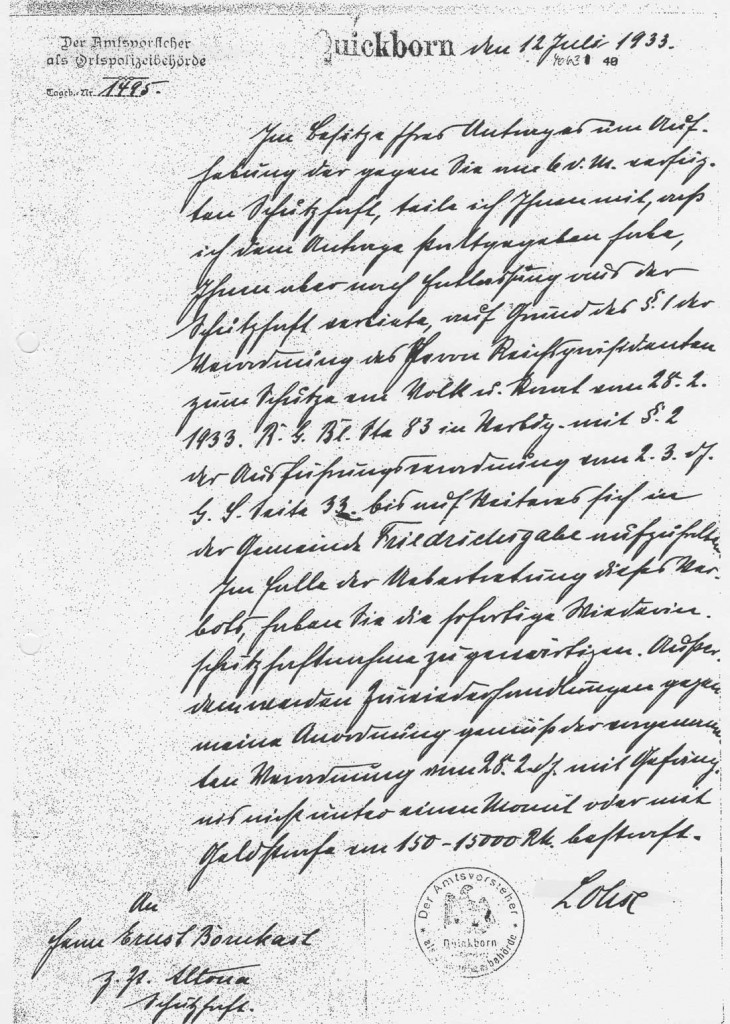 Der Amtsvorsteher
als Ortspolizeibehörde
Tageb.-Nr. 1495.
Quickborn den 12 Juli 1933.
40
Im Besitze Ihres Antrages um Auf-
hebung der gegen Sie am 6 v. M. verfüg-
ten Schutzhaft, teile ich Ihnen mit, daß
ich dem Antrage stattgegeben habe,
Ihnen aber nach Entlassung aus der
Schutzhaft verbiete, auf Grund des §. 1 der
Verordnung des Herrn Reichspräsidenten
zum Schutze von Volk u. Staat vom 28. 2.
1933. R. G. Bl. Ste 83 in Verbdg. mit §. 2
der Ausführungsverordnung vom 2. 3. d J.
G. S. Seite 33. bis auf Weiteres sich in
der Gemeinde Friedrichsgabe aufzuhalten
Im Falle der Uebertretung dieses Ver-
bots, haben Sie die sofortige Wiederin-
schutzhaftnahme zu gewärtigen. Außer-
dem werden Zuwiederhandlungen gegen
meine Anordnung gemäß der vorgenann-
ten Verordnung vom 28. 2. d J. mit Gefäng-
nis nicht unter einem Monat oder mit
Geldstrafe von 150-15000 RM. bestraft.
Lohse
Der Amtsvorsteher
Quickborn
An
Herrn Ernst Bornkast
z. Zt. Altona
Schutzhaft.